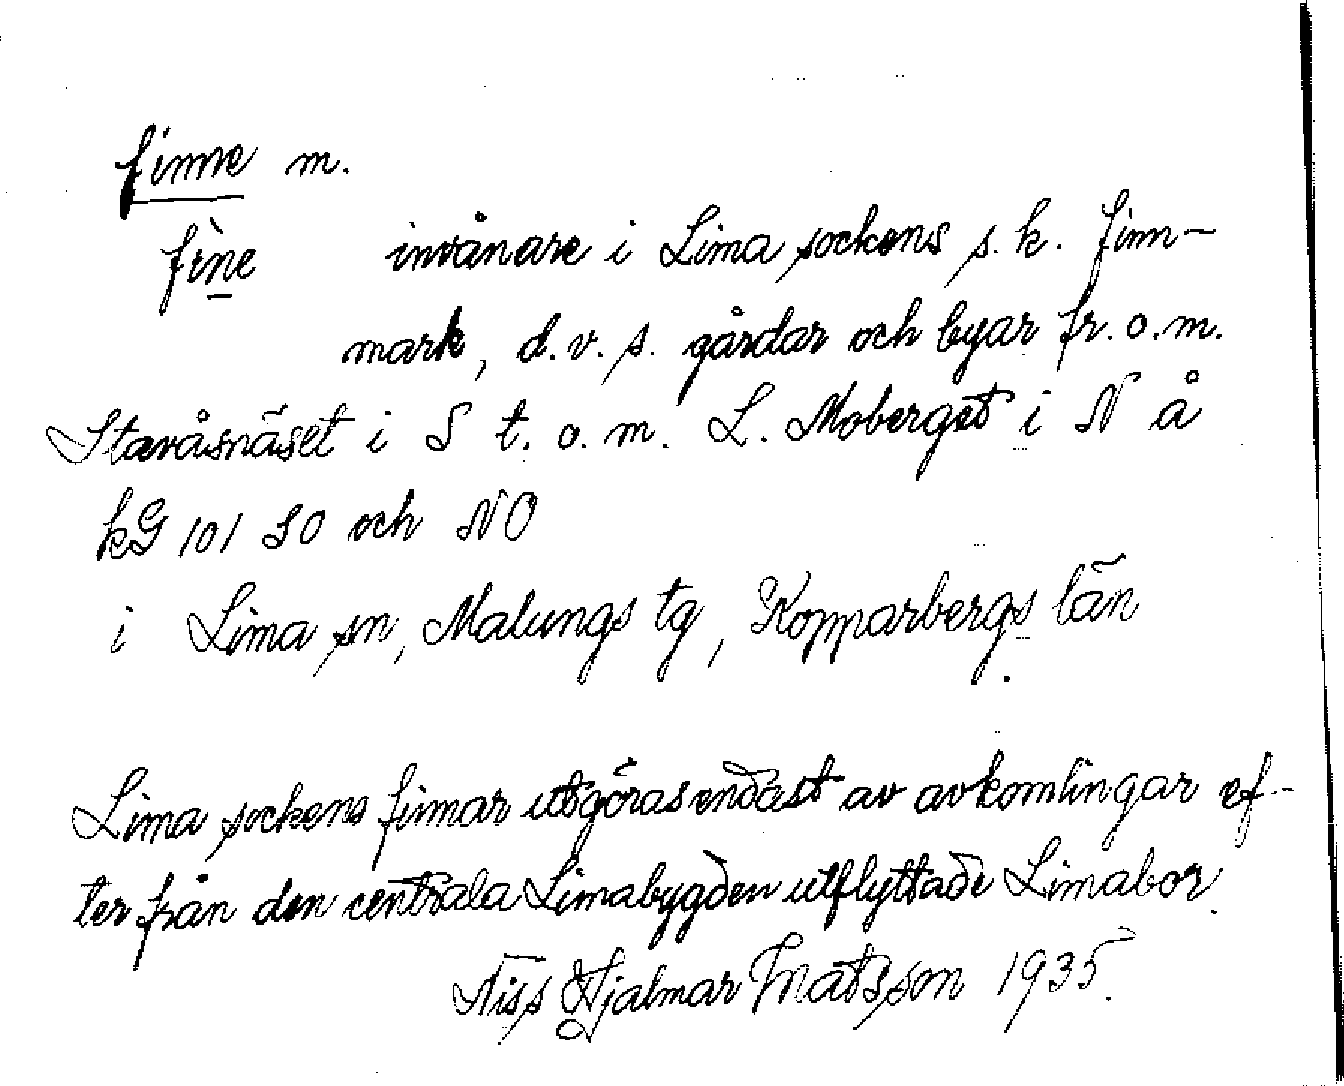 finne m.
fìne invånare i Lima sockens s.k. finn-
mark, d.v.s. gårdar och byar fr.o.m.
Stavåsnäset i S t.o.m. L. Moberget i N å
kG 101 SO och NO
i Lima sn, Malungs tg, Kopparbergs län
Lima sockens finnar utgöras endast av avkomlingar ef-
ter från den centrala Limabygden utflyttade Limabor.
Niss Hjalmar Matsson 1935.